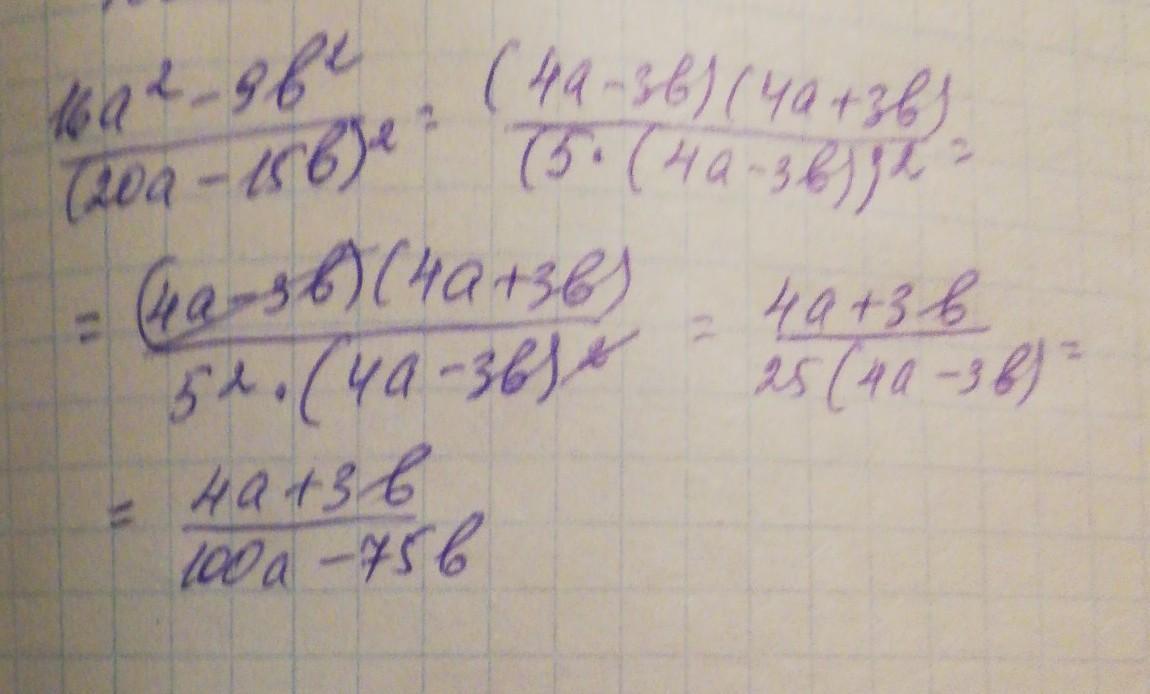 (16a² - 9b²)/(20a - 15b)² = ((4a - 3b)(4a + 3b))/(5 · (4a - 3b))² =
= ((4a - 3b)(4a + 3b))/(5² · (4a - 3b)²) = (4a + 3b)/(25(4a - 3b)) =
= (4a + 3b)/(100a - 75b)